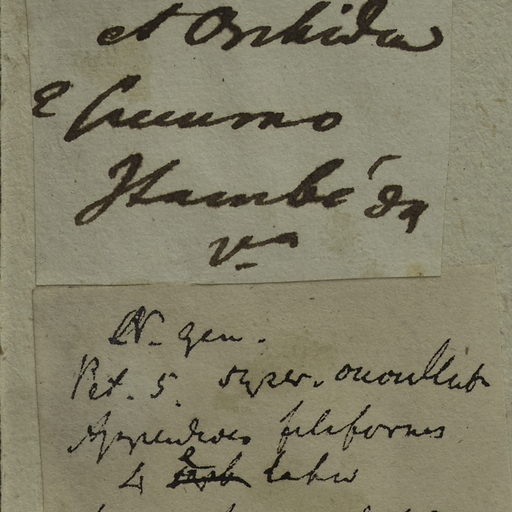 et Orchidea
e Cucumo
Itambé da
va
N. gen.
Pet. 5. super. cucullat.
Appendices filiformes
4 labio